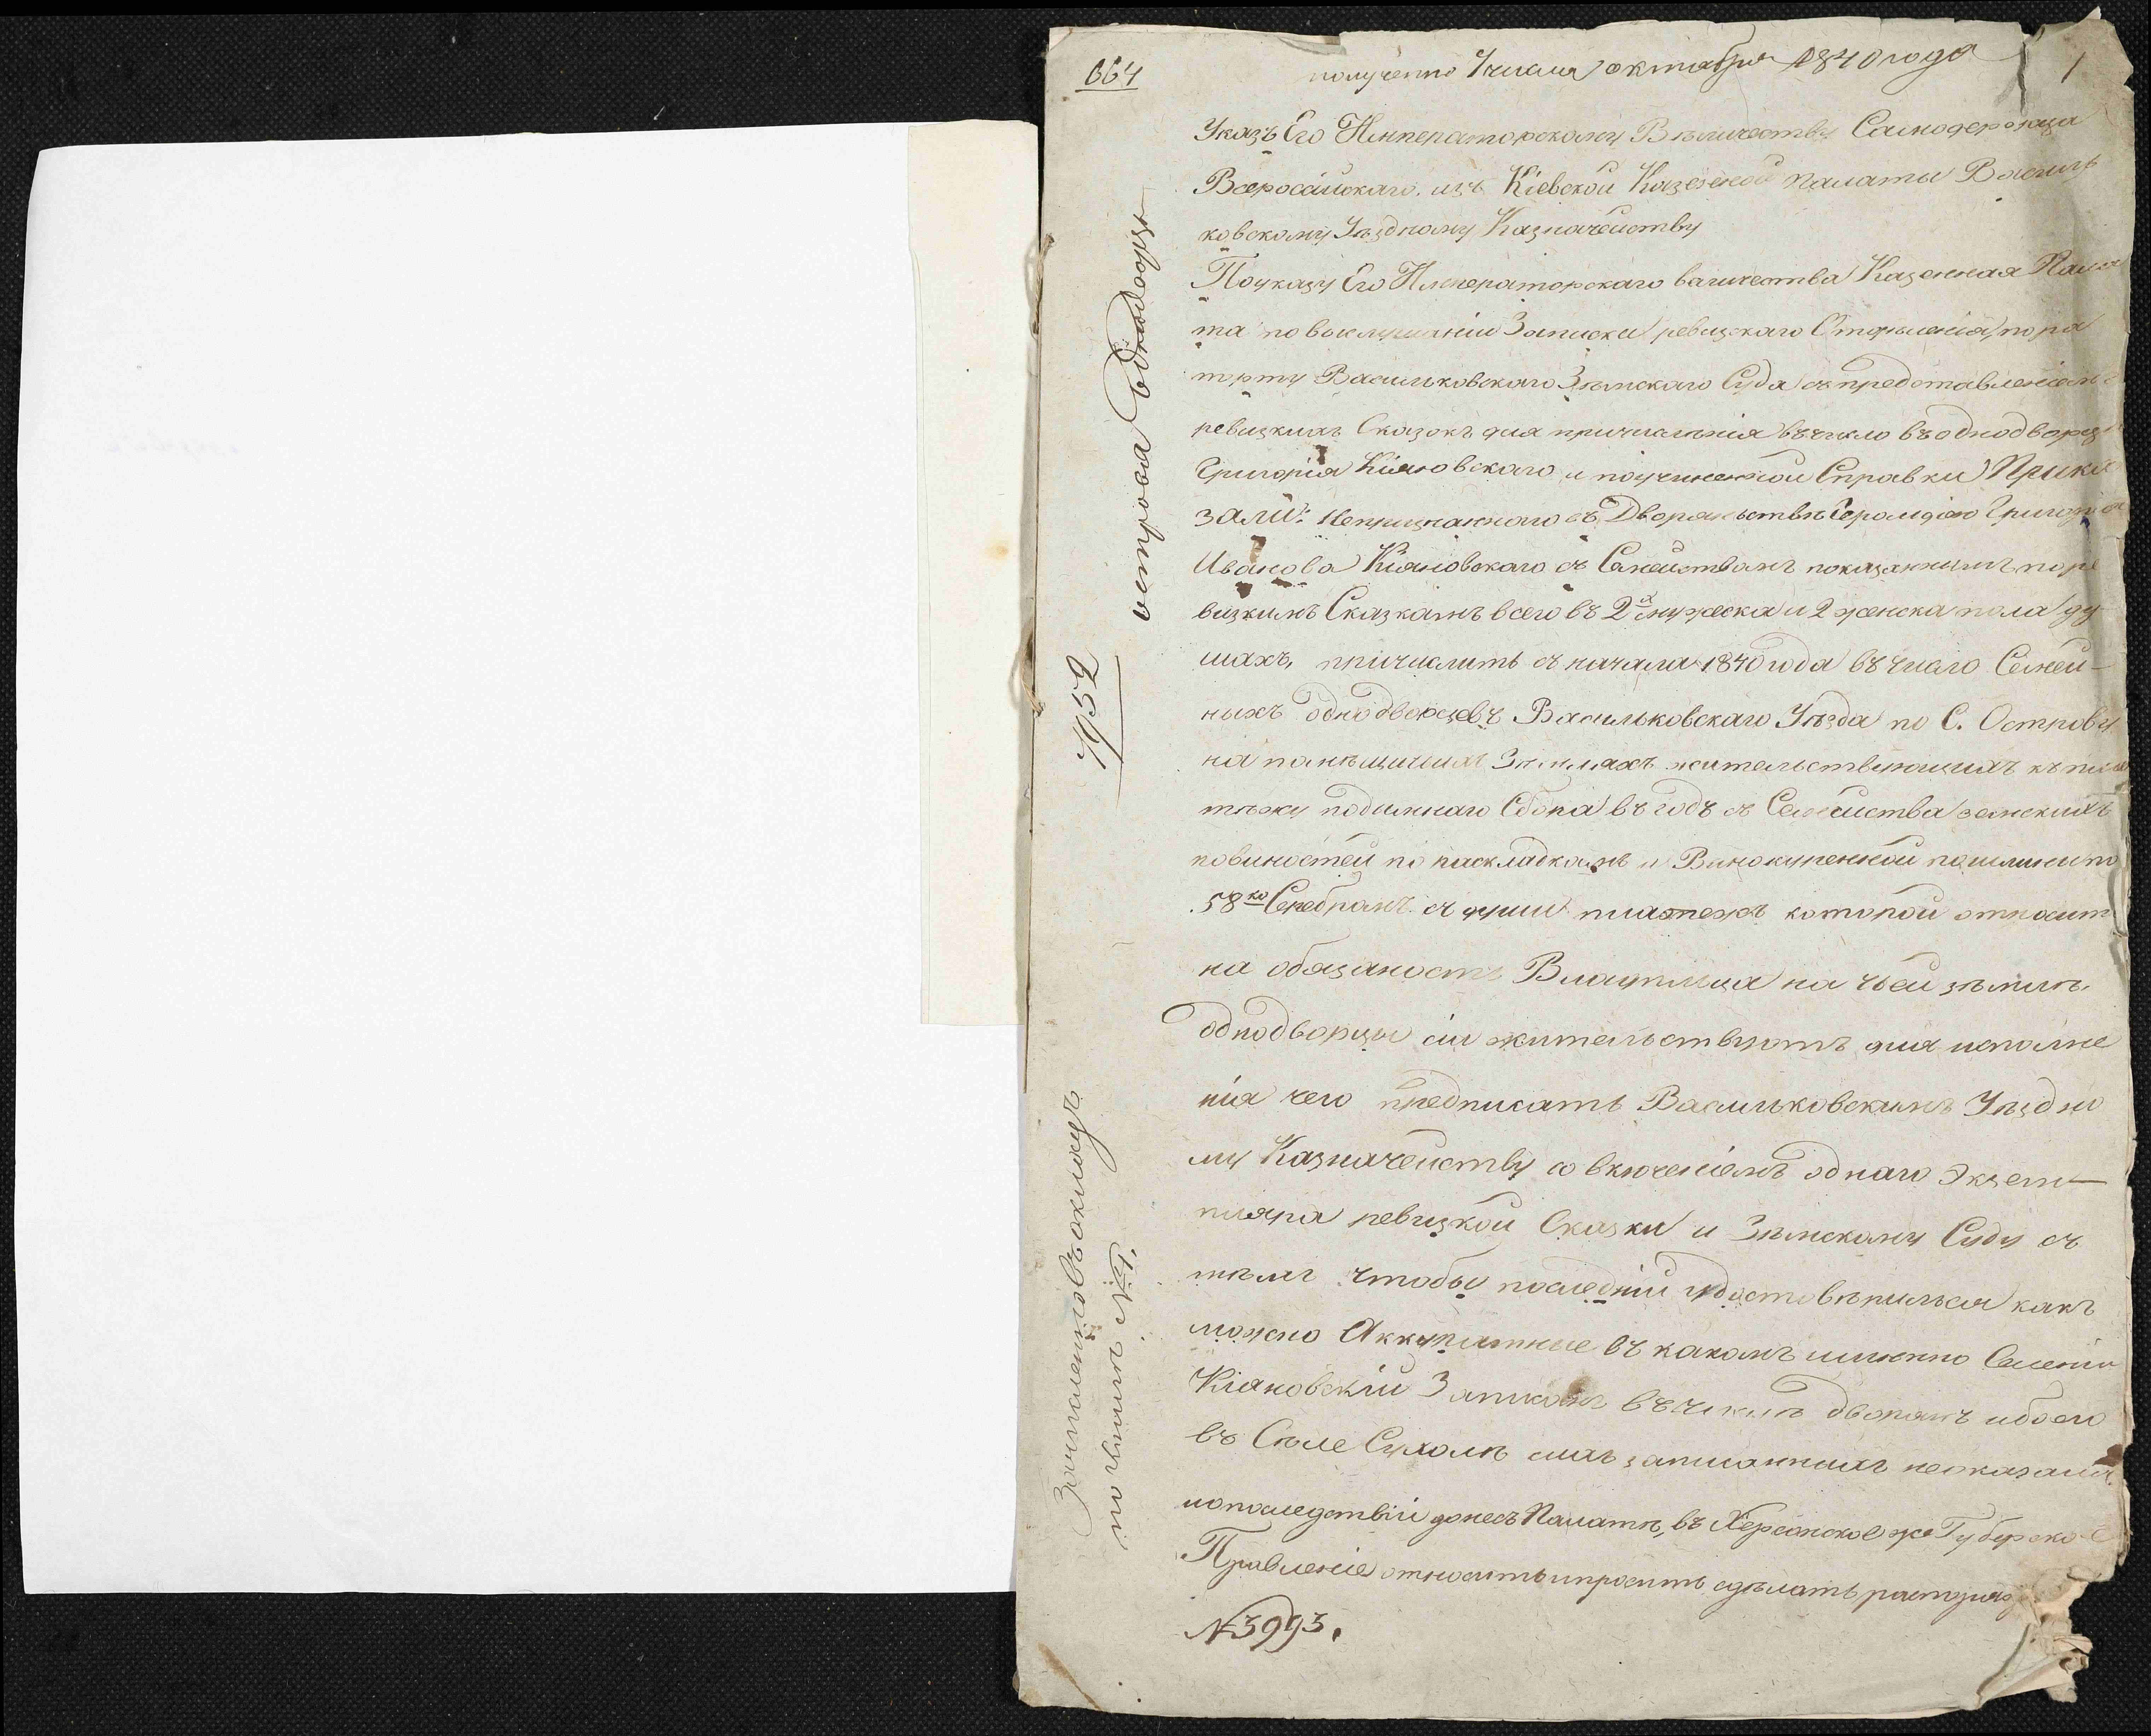 664
получено 7 числа октября 1840 года
1
Указъ Его Императорскому Величеству Самодержца
Всеросайскаго. изъ Кіевской Казеной палаты Василь
ковскому Уѣздному Казначейству
Поуказу Его Императорскаго величества Казенная Пала
та по выслушаніи Записки ревизскаго Отделенія, по ра
порту Васильковскаго Зѣмскаго Суда съ представленіемъ
ревизкихъ Сказокъ для причисленія въ число въ однодворцы
Григорія Кіяновскаго и поучиненной Справки Прика
зали: Непризнаннаго въ Дворянствѣ Герольдіею Григорія
Иванова Кіяновскаго съ Семействомъ показаннымъ поре
визкимъ Сказкамъ всего въ 2х мужеска и 2 женска пола ду
шахъ, причислить съ начала 1840 года въ число Семей-
ныхъ однодворцевъ Васильковскаго Уѣзда по С. Острову
на помѣщичьихъ Зѣмляхъ жительствующихъ къ пла
тѣжу подымнаго Сбора въ годъ съ Семейства земскихъ
повиностей по раскладкамъ и Винокуренной пошлины по
58 ко Серебромъ съ души платежъ которой относит
на обязаность Владѣльца на чьей зѣмлѣ
однодворцы сіи жительствуютъ для исполне
нія чего предписать Васильковскимъ Уѣздно
му Казначейству со включеніемъ однаго Экзем-
пляра ревизкой Сказки и Зѣмскому Суду съ
тѣмъ чтобы последній удостовѣрился какъ
можно Аккуратнее въ какомъ именно Селеніи
Кіяновскій Записанъ въ числѣ дворянъ ибо его
въ Сѣле Сухолѣ записаннымъ неоказалось
ипоследствіи донесъ Палатѣ, въ Херсонское же Губерско е
Правленіе относить и просить сдѣлать распоряж
№ 3993.
острова Однодворцы
1952
Зачисленіе въ окладъ
по книгѣ №